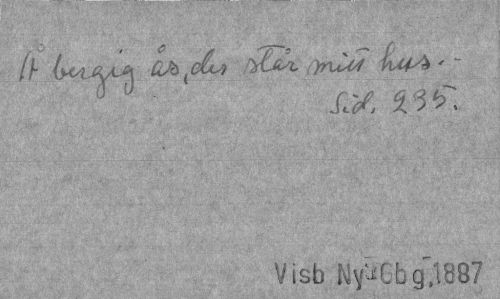 Å bergig ås, der står mitt hus. -
Sid. 235.
Visb Ny I Gbg, 1887